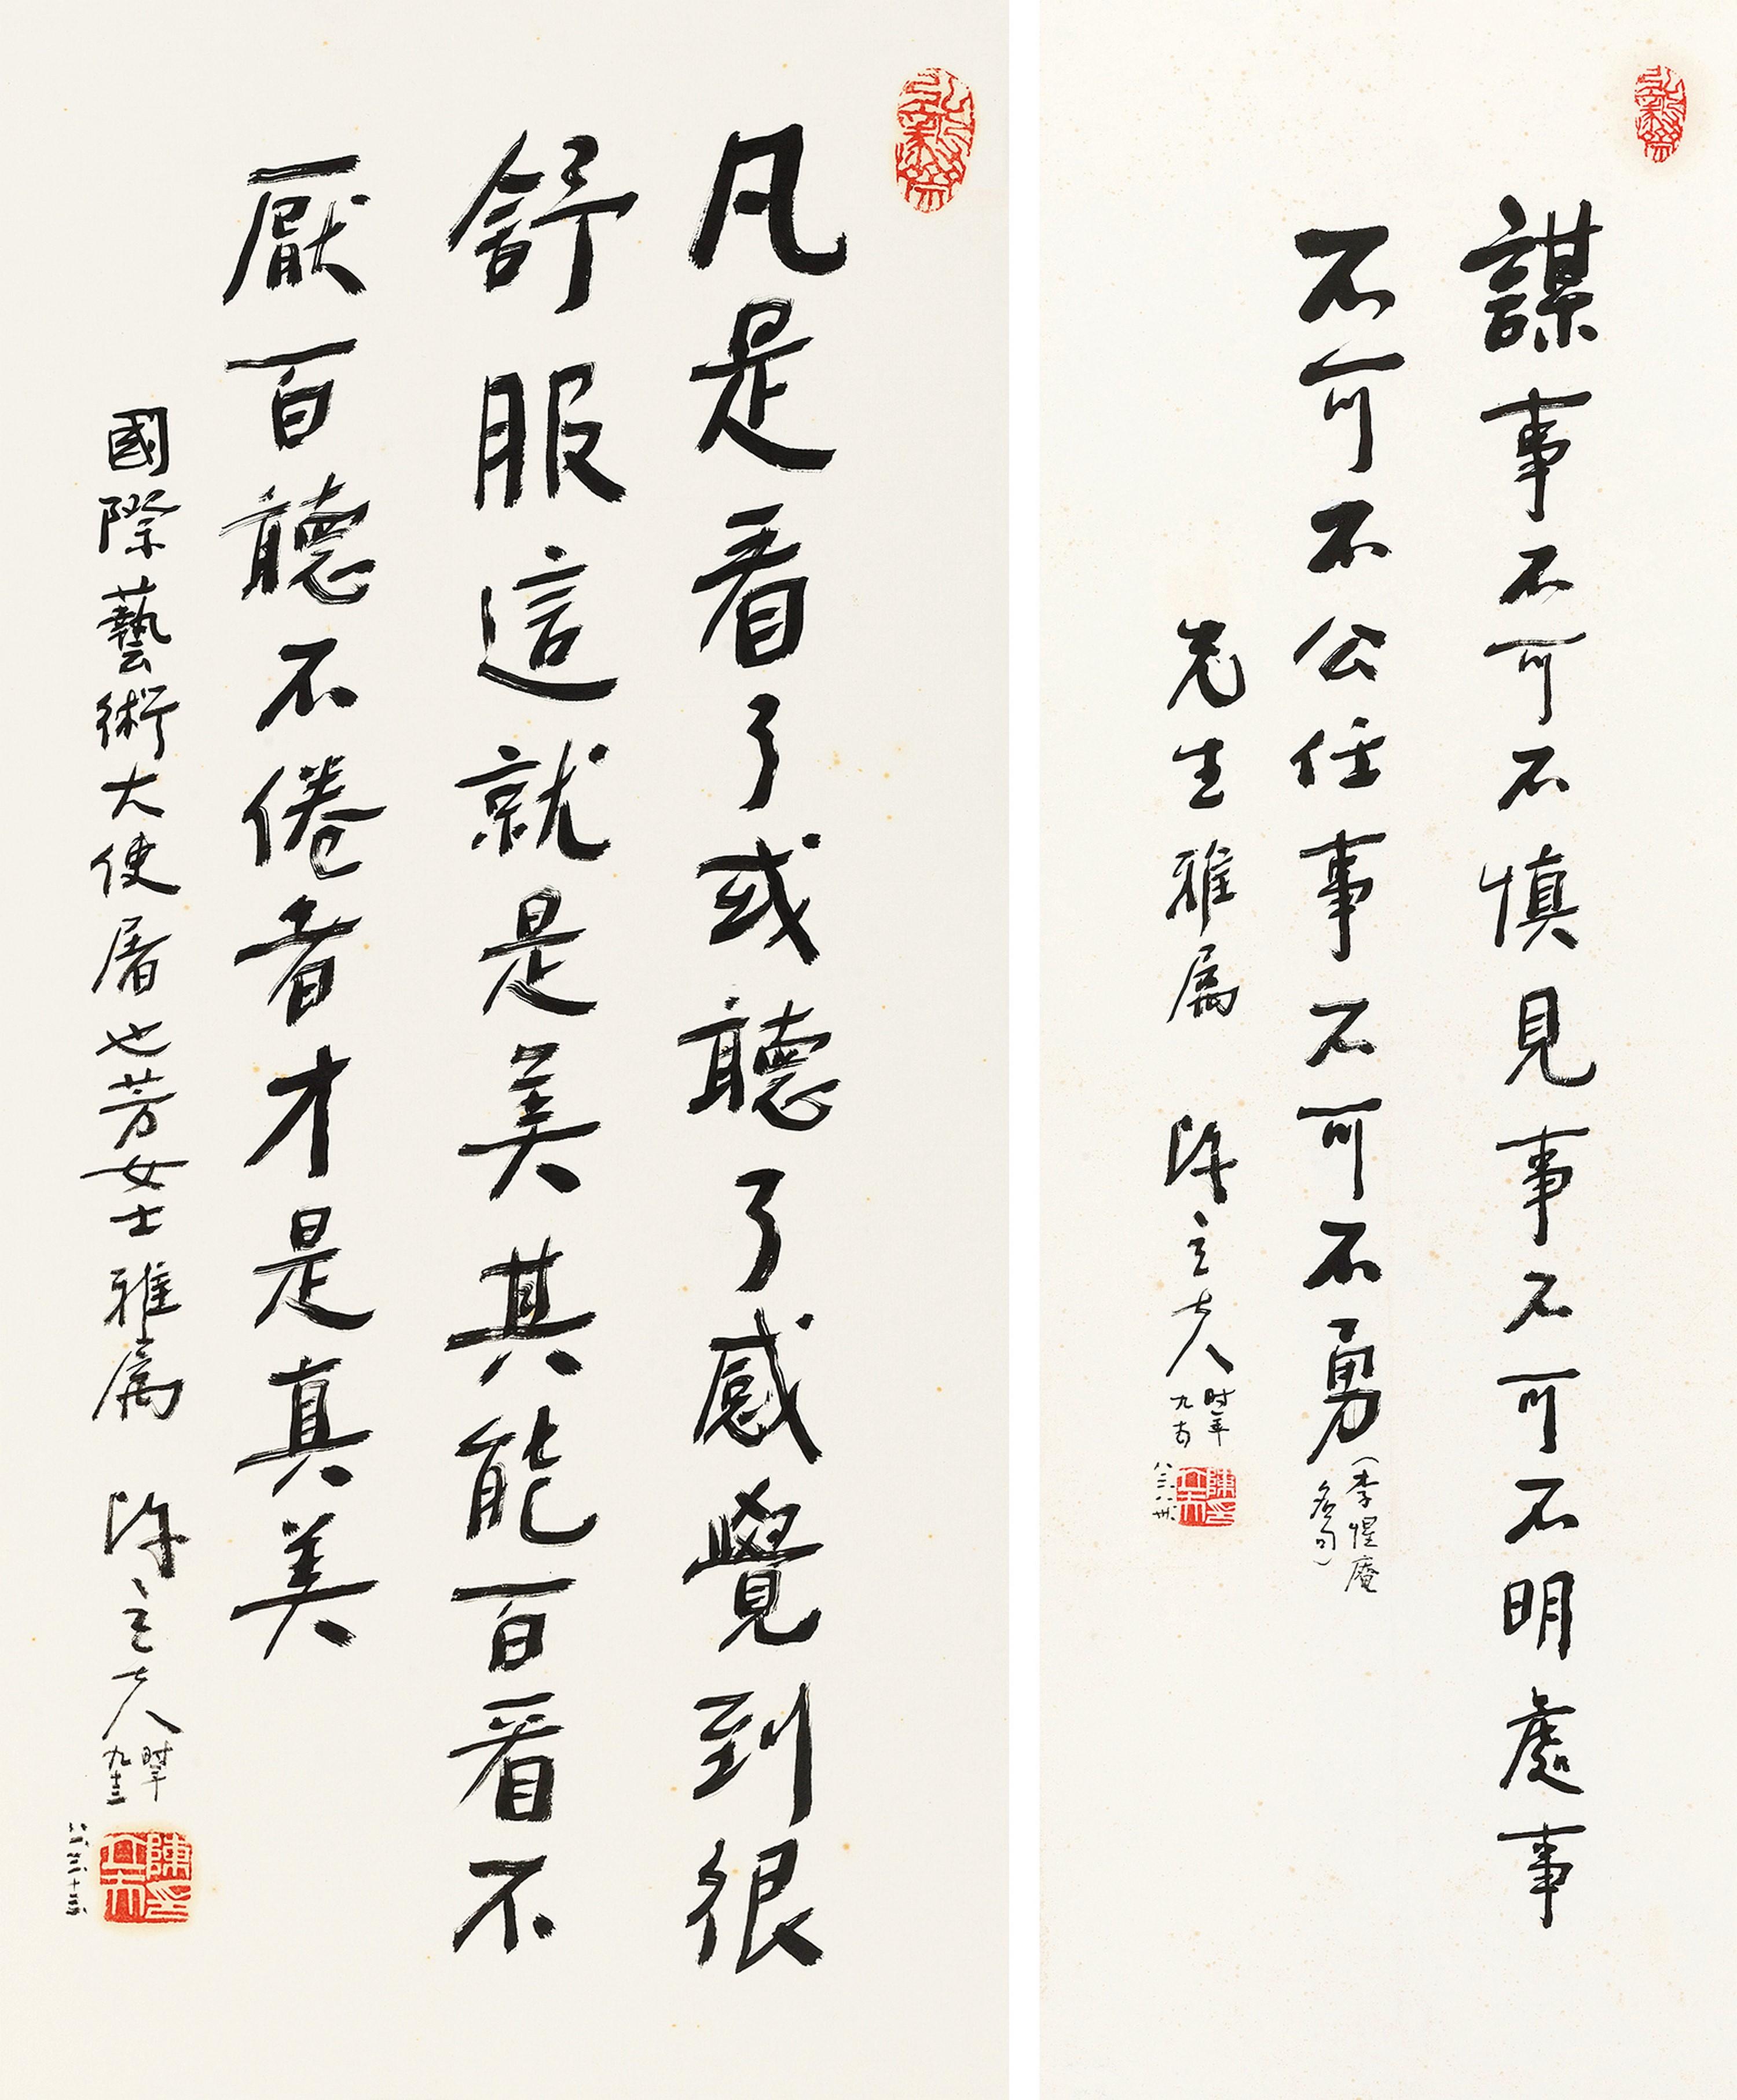 謀事不可不慎見事不可不明處事
不可不公任事不可不勇
(李惺庵
名句)
先生雅属 陈立夫
时年
九十有
陳立夫印
凡是看了或聽了感覺到很
舒服這就是美其能百看不
厭百聽不倦者才是真美
國際藝術大使屠也芳女士雅属 陈立夫
时年
九十三
陳立夫印